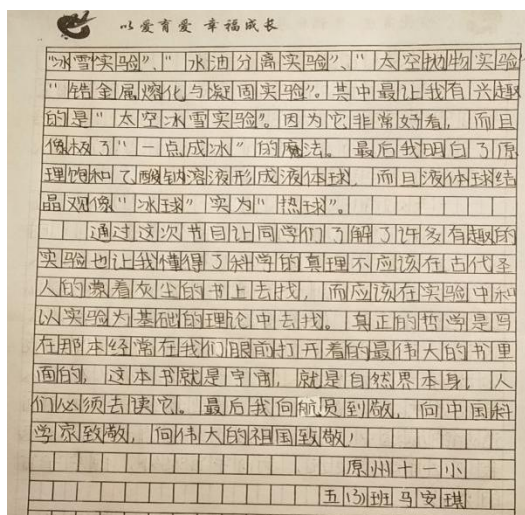 以爱育爱 幸福成长
“冰雪实验”、“水油分离实验”、“太空抛物实验”
“锆金属熔化与凝固实验”。其中最让我有兴趣
的是“太空冰雪实验”。因为它非常好看，而且
像极了“一点成冰”的魔法。最后我明白了原
理饱和乙酸钠溶液形成液体球，而且液体球结
晶观像“冰球”实为“热球”。
通过这次节目让同学们了解了许多有趣的
实验也让我懂得了科学的真理不应该在古代圣
人的蒙着灰尘的书上去找，而应该在实验中和
以实验为基础的理论中去找。真正的哲学是写
在那本经常在我们眼前打开着的最伟大的书里
面的，这本书就是宇宙，就是自然界本身，人
们必须去读它。最后我向航员到敬，向中国科
学家致敬，向伟大的祖国致敬！
原州十一小
五(3)班马安琪